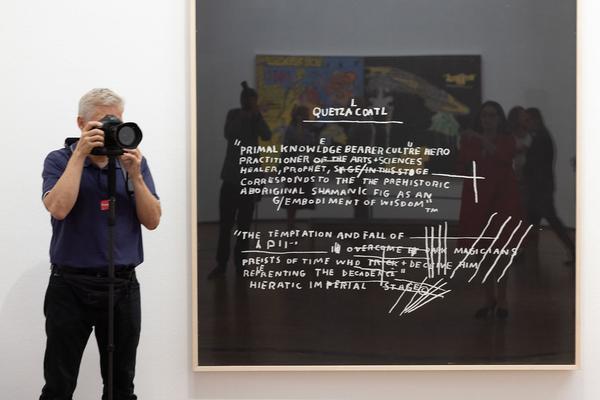 QUETZALCOATL
"PRIMAL KNOWLEDGE BEARER CULTURE HERO
PRACTITIONER OF THE ARTS+SCIENCES
HEALER, PROPHET, SAGE/IN THIS STAGE
CORRESPONDS TO THE THE PREHISTORIC
ABORIGINAL SHAMANIC FIG AS AN
G/EMBODIMENT OF WISDOM"™
"THE TEMPTATION AND FALL OF
IS OVERCOME BY DARK MAGICIANS
PREISTS OF TIME WHO TRICK+DECEIVE HIM
REPRENTING THE DECADENCE"
HIERATIC IMPERIAL STAGE